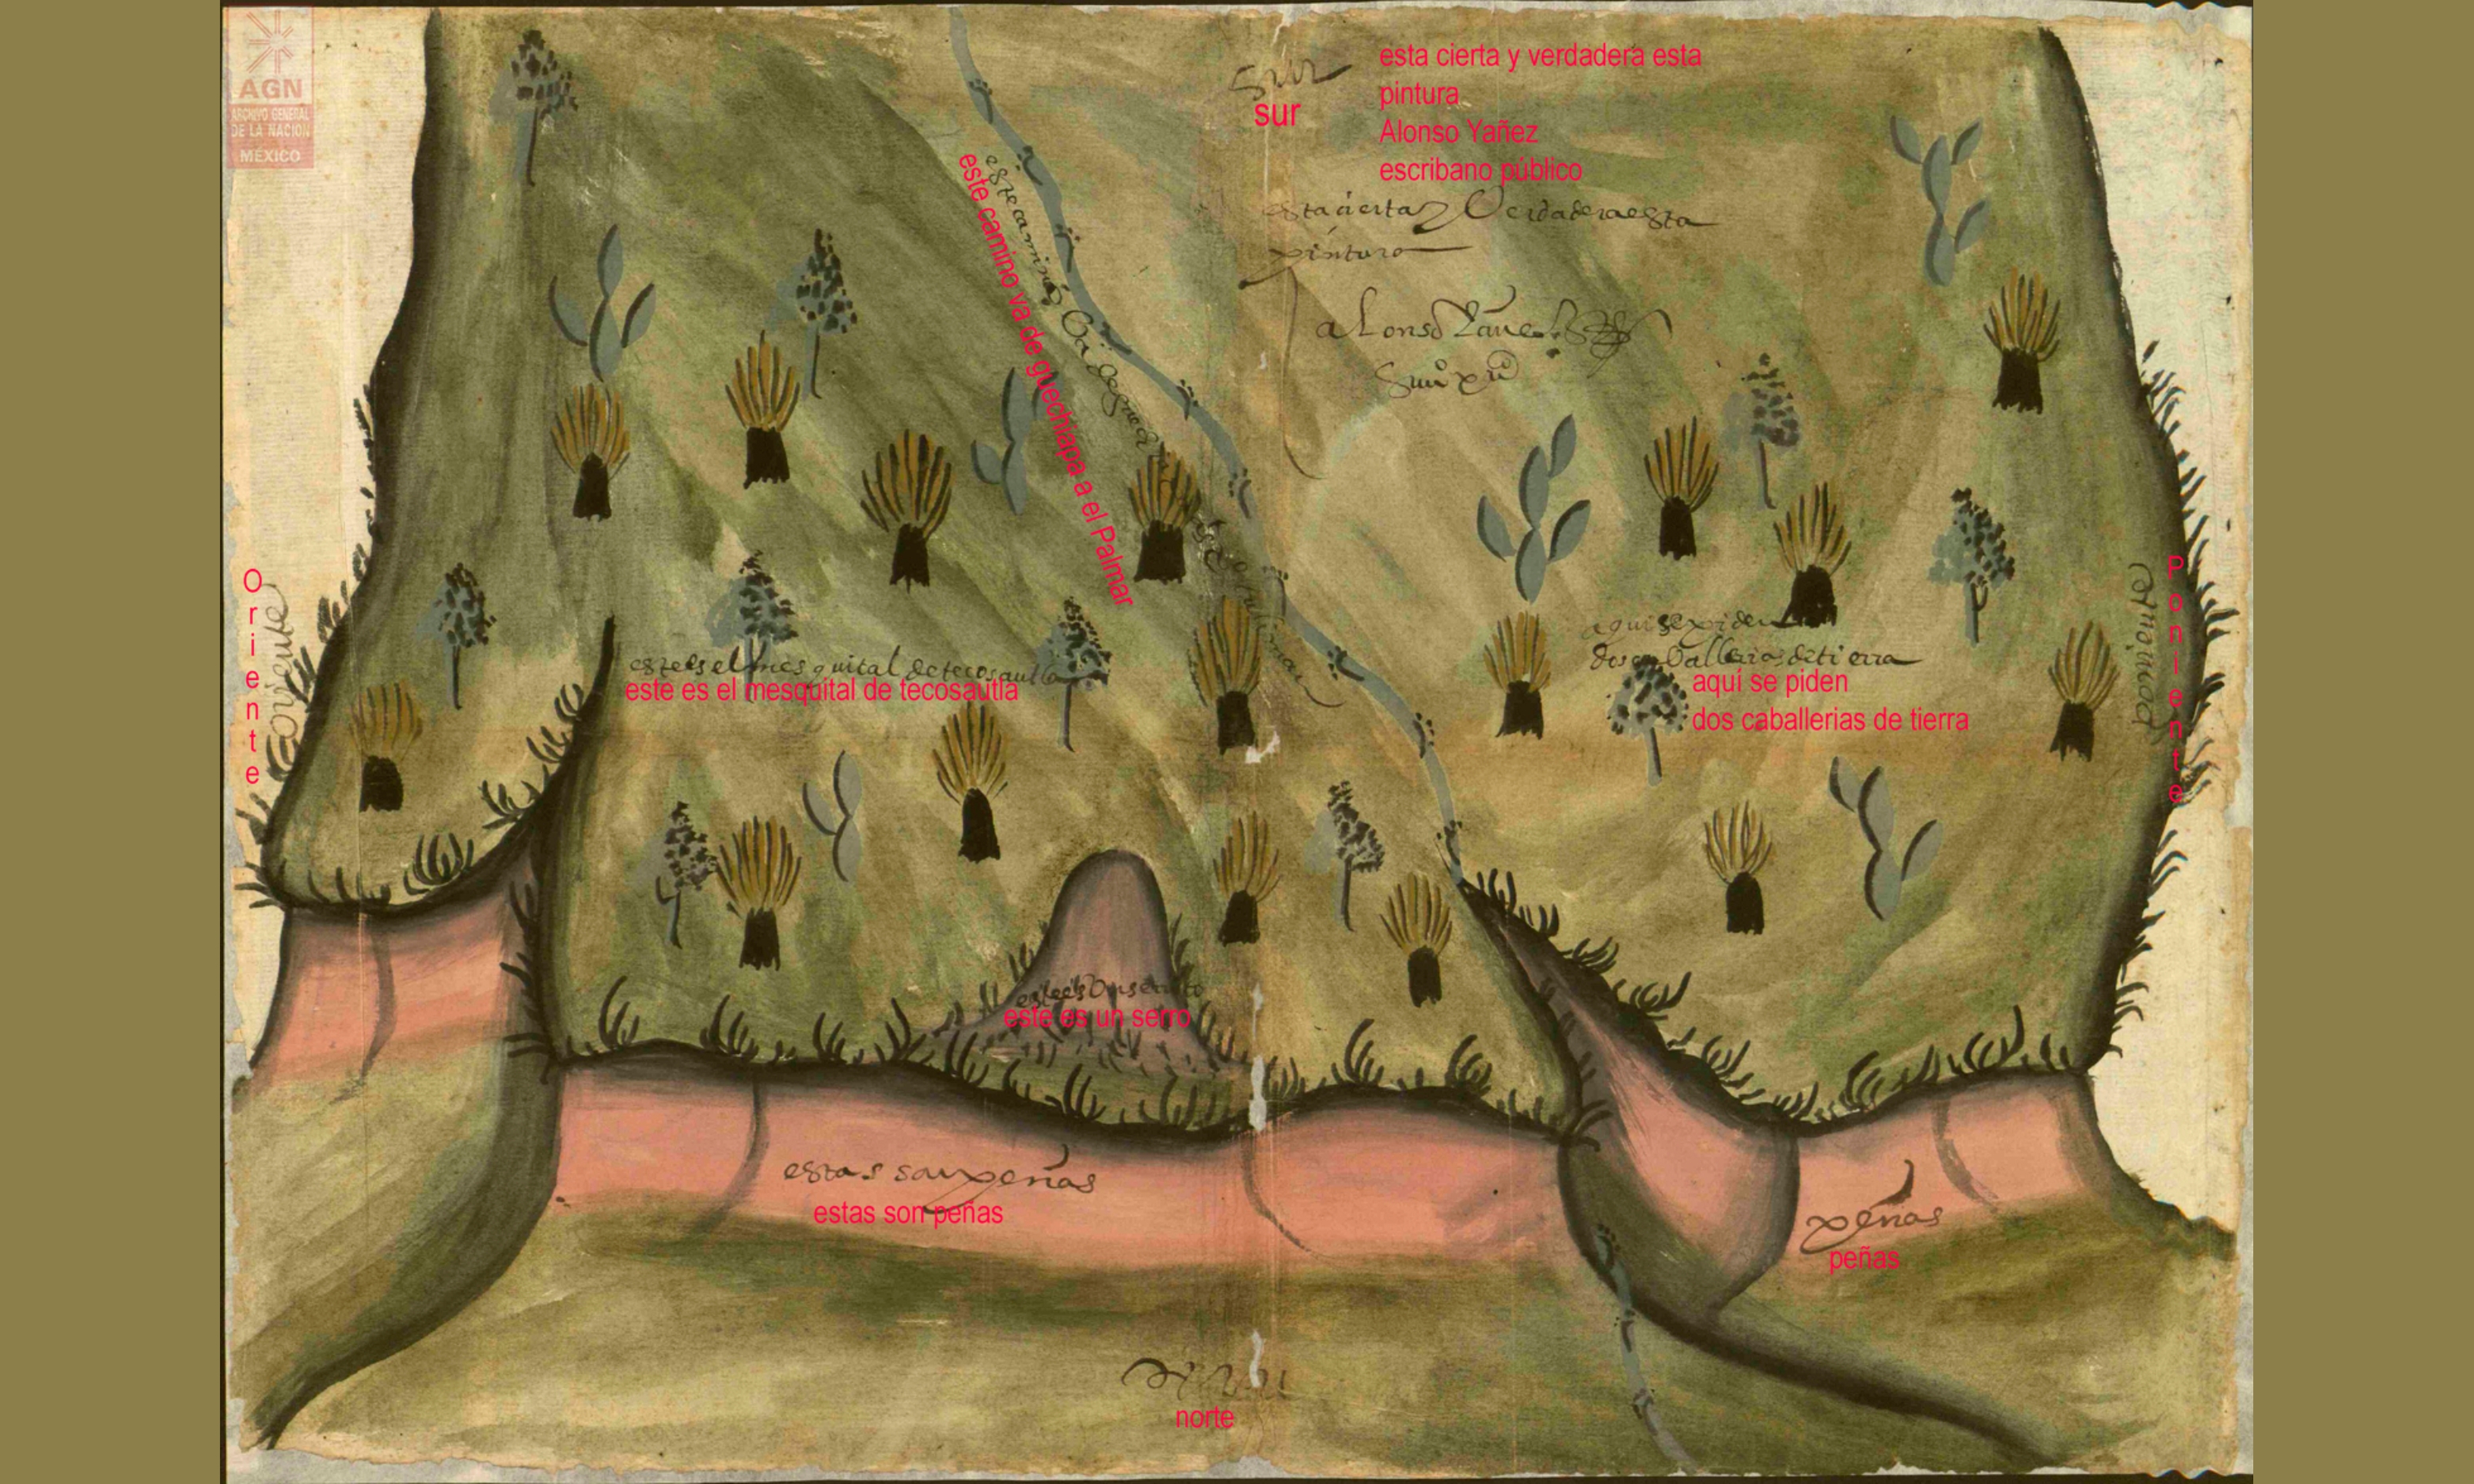 AGN
ARCHIVO GENERAL
DE LA NACION
MÉXICO
sur
sur
esta cierta y verdadera esta
pintura
Alonso Yañez
escribano público
esta cierta y Verdadera esta
pintura
alonso Yañez
este camino va de guechiapa a el Palmar
este camino Va de
Oriente
Oriente
este es el mesquital de tecosautla
este es el mesquital de tecosautla
aqui se piden
dos caVallerias de tierra
aquí se piden
dos caballerias de tierra
Poniente
este es Un serrito
este es un serro
estas son peñas
estas son peñas
peñas
peñas
norte